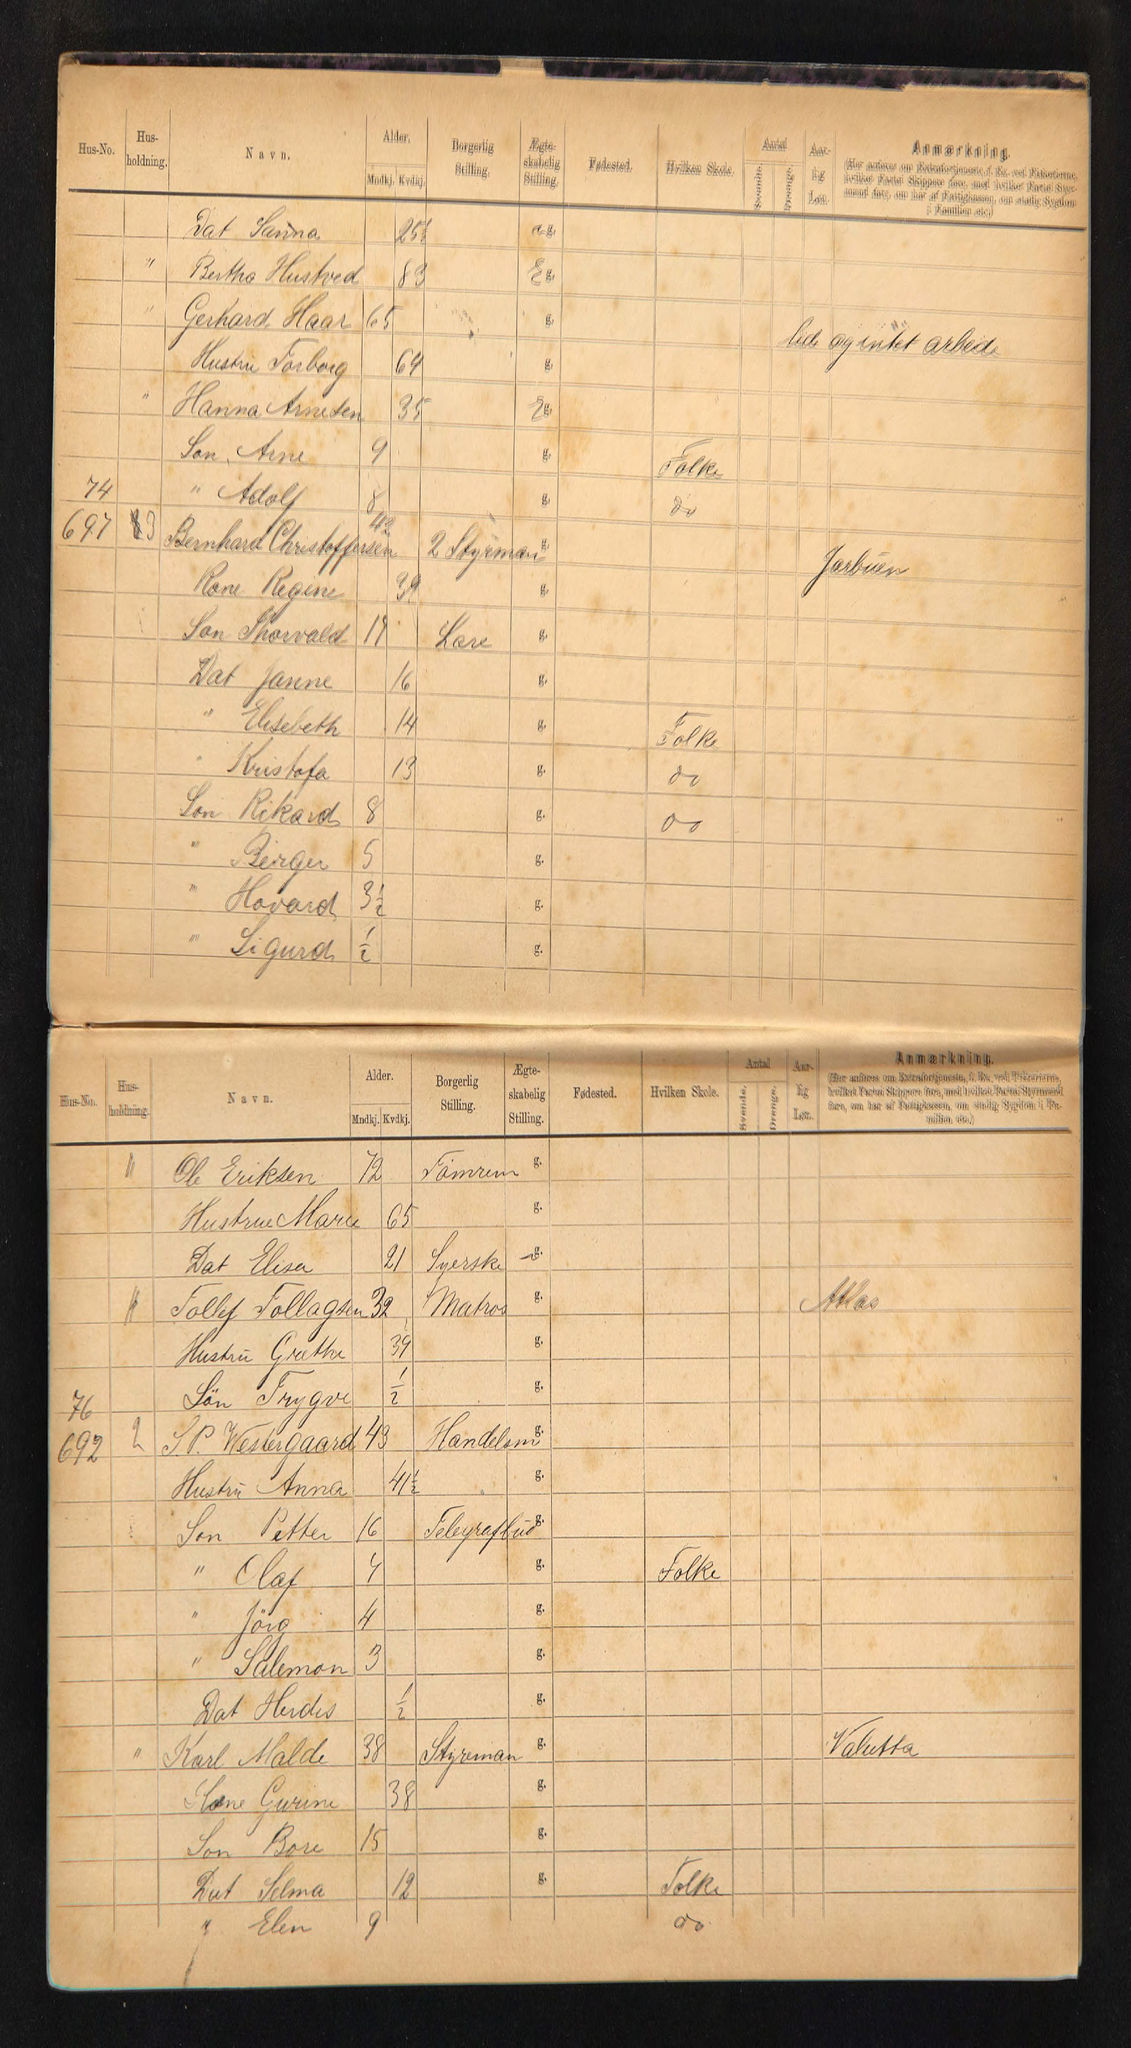 Hus-No. Hus-holdning. Navn. Alder. Mndkj. Kvdkj. Borgerlig Stilling. Ægte-skabelig Stilling. Fødested. Hvilken Skole. Antal Svende. Drenge. Aar-lig Løn. Anmærkning.
(Her anføres om Extrafortjeneste, f. Ex. ved Fiskerierne,
hvilket Fartøi Skippere føre, med hvilket Fartøi Styr-
mænd fare, om har af Fattigkassen, om stadig Sygdom
i Familien etc.)
Dat Sanna 25½ g.
" Bertha Hustved 83 E g.
" Gerhard Haar 65 g. og intet arbeide
Hustru Torborg 64 g.
" Hanna Arnesen 35 E g.
Son. Arne 9 g. Folke
74 " Adolf 8 g. do
697 3 Bernhard Christoffersen 42 2 Styrman g. Jarbuen
Kone Regine 39 g.
Son Thorvald 19 Lære g.
Dat Janne 16 g.
" Elisebeth 14 g. Folke
" Kristofa 13 g. do
Son Rikard 8 g. do
" Berger 5 g.
" Hovard 3½ g.
" Sigurd ½ g.
Hus-No. Hus-holdning. Navn. Alder. Mndkj. Kvdkj. Borgerlig Stilling. Ægte-skabelig Stilling. Fødested. Hvilken Skole. Antal Svende. Drenge. Aar-lig Løn. Anmærkning.
(Her anføres om Extrafortjeneste, f. Ex. ved Fiskerierne,
hvilket Fartøi Skippere føre, med hvilket Fartøi Styrmænd
fare, om har af Fattigkassen, om stadig Sygdom i Fa-
milien etc.)
" Ole Eriksen 72 Tömrem g.
Hustrue Marie 65 g.
Dat Elisa 21 Syerske g.
" Tollef Tollagsen 32 Matros g. Atlas
Hustru Grethe 39 g.
76 Sön Trygve ½ g.
692 2 S P. Westergaard 43 Handelsm g.
Hustru Anna 41½ g.
Son Petter 16 Telegrafbud g.
" Olaf 7 g. Folke
" Jörg 4 g.
" Salemon 3 g.
Dat Herdis ½ g.
" Karl Malde 38 Styreman g. Valutta
Kone Gurine 38 g.
Son Bore 15 g.
Dat Selma 12 g. Folke
" Elen 9 do